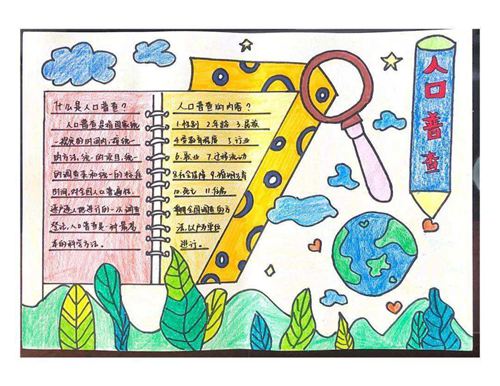 人口普查
什么是人口普查？
人口普查是指国家统
一规定的时间内，按统一
的方法，统一的项目，统一
的调查表和统一的标准
时间，对全国人口普遍地、
逐户逐人地进行的一次调查
登记。人口普查是一种最基
本的科学方法。
人口普查的内容？
1.性别 2.年龄 3.民族
4.受教育程度 5.行业
6.职业 7.迁移流动
8.社会保障 9.婚姻生育
10.死亡 11.住房
全国调查的方
法，以户为单位
进行。